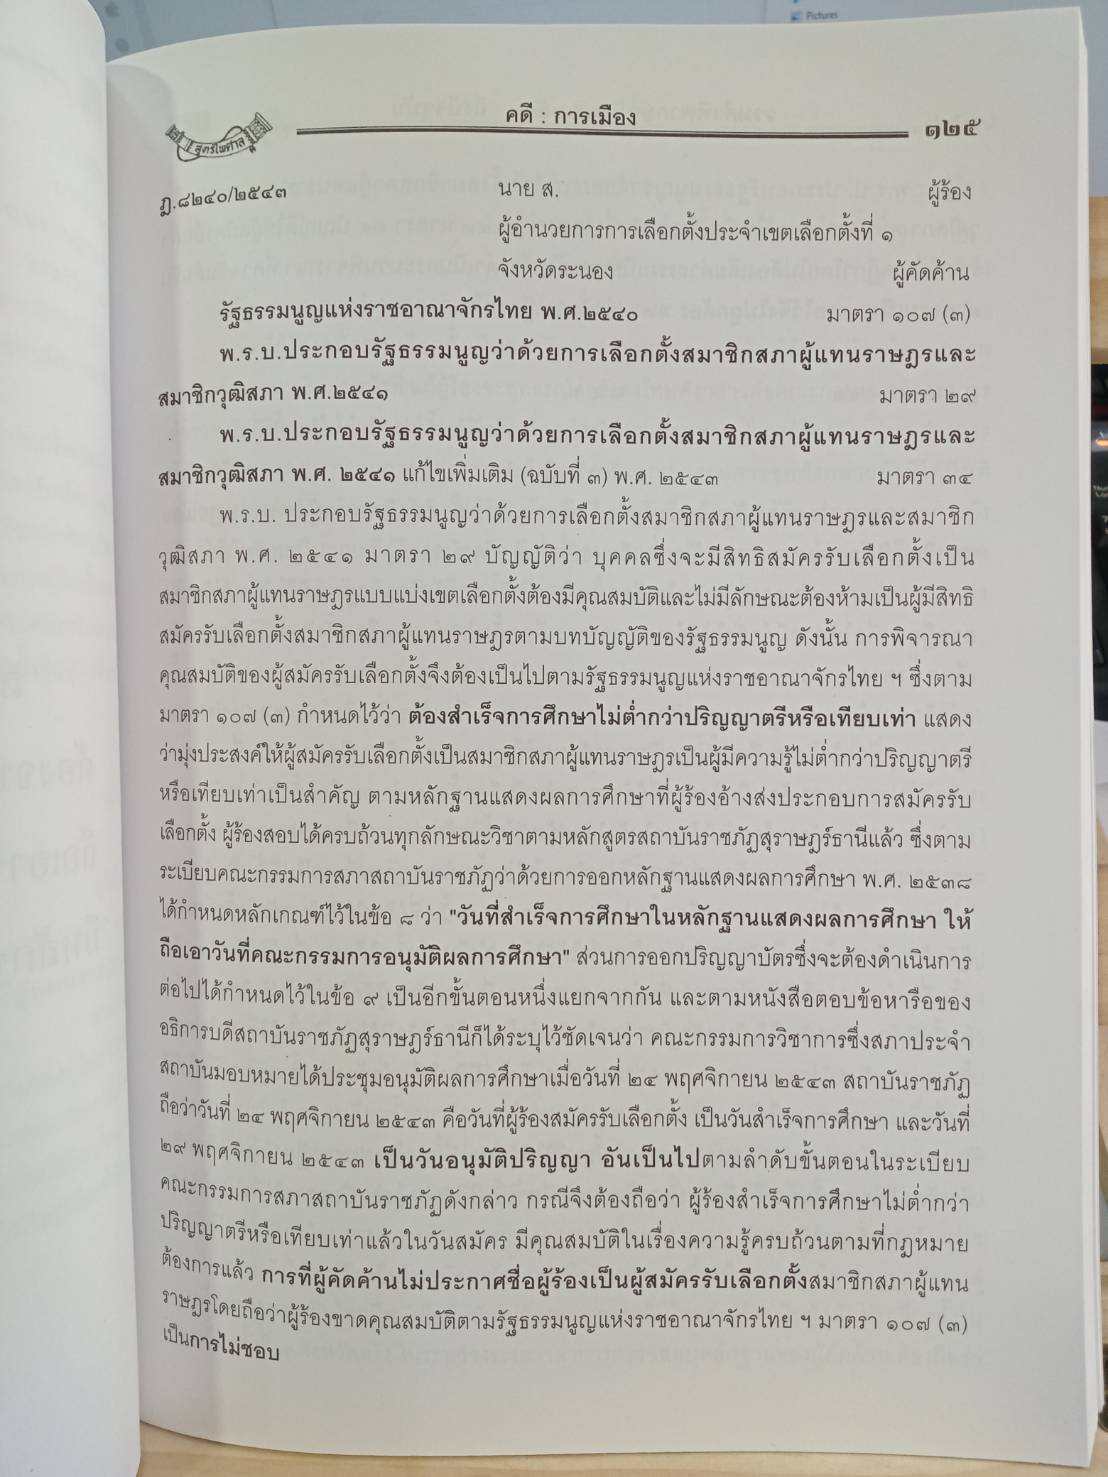 Pictures
คดี : การเมือง
๑๒๕
สูตรไพศาล
ฎ.๘๒๔๐/๒๕๔๓ นาย ส. ผู้ร้อง
ผู้อำนวยการการเลือกตั้งประจำเขตเลือกตั้งที่ ๑
จังหวัดระนอง ผู้คัดค้าน
รัฐธรรมนูญแห่งราชอาณาจักรไทย พ.ศ.๒๕๔๐ มาตรา ๑๐๗ (๓)
พ.ร.บ.ประกอบรัฐธรรมนูญว่าด้วยการเลือกตั้งสมาชิกสภาผู้แทนราษฎรและ
สมาชิกวุฒิสภา พ.ศ.๒๕๔๑ มาตรา ๒๙
พ.ร.บ.ประกอบรัฐธรรมนูญว่าด้วยการเลือกตั้งสมาชิกสภาผู้แทนราษฎรและ
สมาชิกวุฒิสภา พ.ศ. ๒๕๔๑ แก้ไขเพิ่มเติม (ฉบับที่ ๓) พ.ศ. ๒๕๔๓ มาตรา ๓๔
พ.ร.บ. ประกอบรัฐธรรมนูญว่าด้วยการเลือกตั้งสมาชิกสภาผู้แทนราษฎรและสมาชิก
วุฒิสภา พ.ศ. ๒๕๔๑ มาตรา ๒๙ บัญญัติว่า บุคคลซึ่งจะมีสิทธิสมัครรับเลือกตั้งเป็น
สมาชิกสภาผู้แทนราษฎรแบบแบ่งเขตเลือกตั้งต้องมีคุณสมบัติและไม่มีลักษณะต้องห้ามเป็นผู้มีสิทธิ
สมัครรับเลือกตั้งสมาชิกสภาผู้แทนราษฎรตามบทบัญญัติของรัฐธรรมนูญ ดังนั้น การพิจารณา
คุณสมบัติของผู้สมัครรับเลือกตั้งจึงต้องเป็นไปตามรัฐธรรมนูญแห่งราชอาณาจักรไทย ฯ ซึ่งตาม
มาตรา ๑๐๗ (๓) กำหนดไว้ว่า ต้องสำเร็จการศึกษาไม่ต่ำกว่าปริญญาตรีหรือเทียบเท่า แสดง
ว่ามุ่งประสงค์ให้ผู้สมัครรับเลือกตั้งเป็นสมาชิกสภาผู้แทนราษฎรเป็นผู้มีความรู้ไม่ต่ำกว่าปริญญาตรี
หรือเทียบเท่าเป็นสำคัญ ตามหลักฐานแสดงผลการศึกษาที่ผู้ร้องอ้างส่งประกอบการสมัครรับ
เลือกตั้ง ผู้ร้องสอบได้ครบถ้วนทุกลักษณะวิชาตามหลักสูตรสถาบันราชภัฏสุราษฎร์ธานีแล้ว ซึ่งตาม
ระเบียบคณะกรรมการสภาสถาบันราชภัฏว่าด้วยการออกหลักฐานแสดงผลการศึกษา พ.ศ. ๒๕๓๘
ได้กำหนดหลักเกณฑ์ไว้ในข้อ ๘ ว่า "วันที่สำเร็จการศึกษาในหลักฐานแสดงผลการศึกษา ให้
ถือเอาวันที่คณะกรรมการอนุมัติผลการศึกษา" ส่วนการออกปริญญาบัตรซึ่งจะต้องดำเนินการ
ต่อไปได้กำหนดไว้ในข้อ ๙ เป็นอีกขั้นตอนหนึ่งแยกจากกัน และตามหนังสือตอบข้อหารือของ
อธิการบดีสถาบันราชภัฏสุราษฎร์ธานีก็ได้ระบุไว้ชัดเจนว่า คณะกรรมการวิชาการซึ่งสภาประจำ
สถาบันมอบหมายได้ประชุมอนุมัติผลการศึกษาเมื่อวันที่ ๒๔ พฤศจิกายน ๒๕๔๓ สถาบันราชภัฏ
ถือว่าวันที่ ๒๔ พฤศจิกายน ๒๕๔๓ คือวันที่ผู้ร้องสมัครรับเลือกตั้ง เป็นวันสำเร็จการศึกษา และวันที่
๒๙ พฤศจิกายน ๒๕๔๓ เป็นวันอนุมัติปริญญา อันเป็นไปตามลำดับขั้นตอนในระเบียบ
คณะกรรมการสภาสถาบันราชภัฏดังกล่าว กรณีจึงต้องถือว่า ผู้ร้องสำเร็จการศึกษาไม่ต่ำกว่า
ปริญญาตรีหรือเทียบเท่าแล้วในวันสมัคร มีคุณสมบัติในเรื่องความรู้ครบถ้วนตามที่กฎหมาย
ต้องการแล้ว การที่ผู้คัดค้านไม่ประกาศชื่อผู้ร้องเป็นผู้สมัครรับเลือกตั้งสมาชิกสภาผู้แทน
ราษฎรโดยถือว่าผู้ร้องขาดคุณสมบัติตามรัฐธรรมนูญแห่งราชอาณาจักรไทย ฯ มาตรา ๑๐๗ (๓)
เป็นการไม่ชอบ